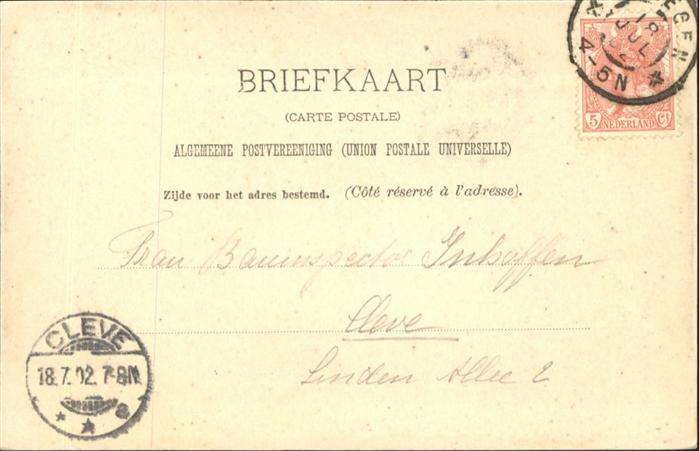 EGEN
18
JUL
4-5N
5 NEDERLAND Ct
BRIEFKAART
(CARTE POSTALE)
ALGEMEENE POSTVEREENIGING (UNION POSTALE UNIVERSELLE)
Zijde voor het adres bestemd. (Côté réservé à l'adresse).
Frau Bauinspector Inhoffen
Cleve
Linden Allee 2
CLEVE
18.7.02.7-8N
a